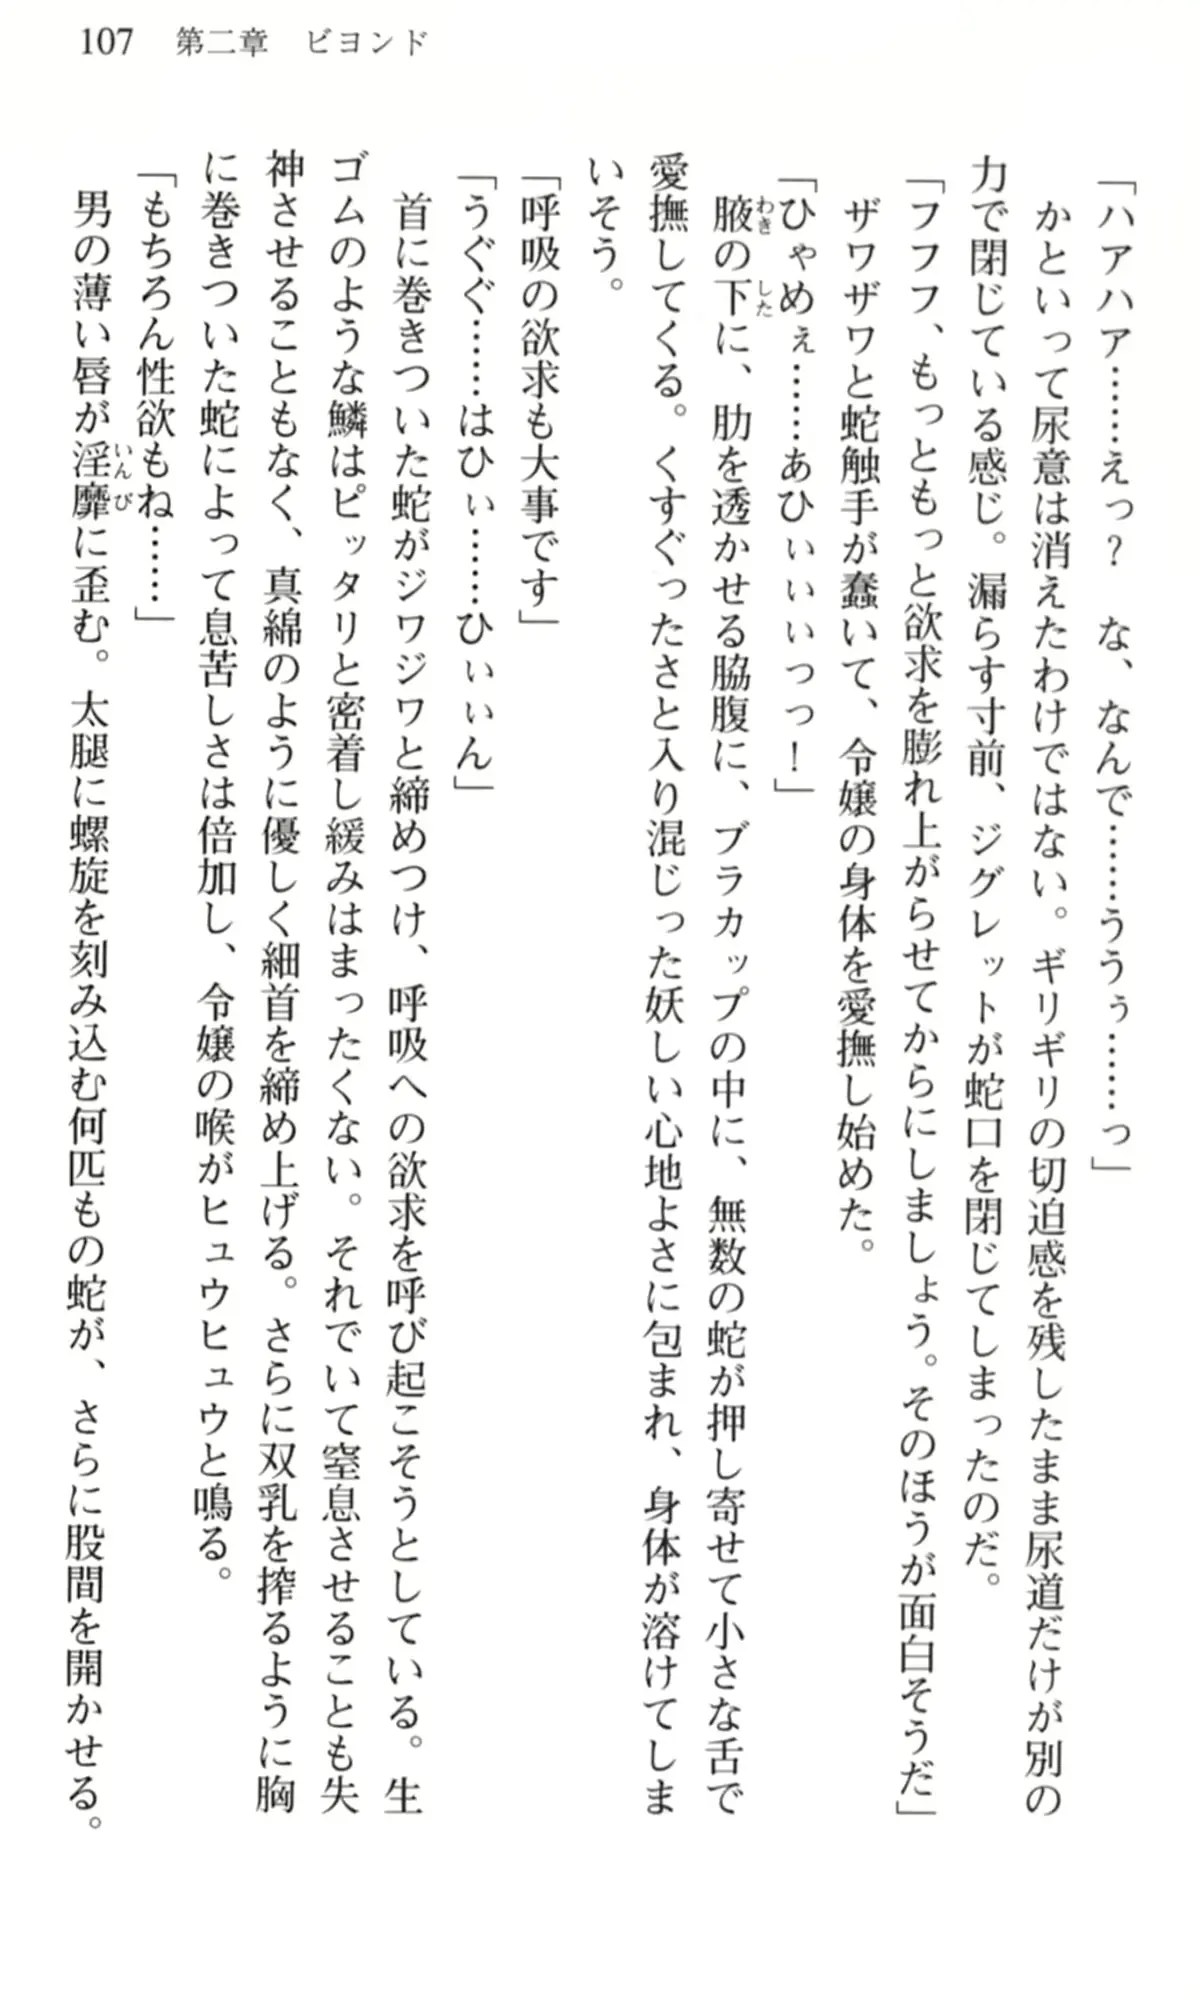 107　第二章　ビヨンド
「ハアハア……えっ？　な、なんで……ううぅ……っ」
　かといって尿意は消えたわけではない。ギリギリの切迫感を残したまま尿道だけが別の
力で閉じている感じ。漏らす寸前、ジグレットが蛇口を閉じてしまったのだ。
「フフフ、もっともっと欲求を膨れ上がらせてからにしましょう。そのほうが面白そうだ」
　ザワザワと蛇触手が蠢いて、令嬢の身体を愛撫し始めた。
「ひゃめぇ……あひぃぃぃっっ！」
　腋の下に、肋を透かせる脇腹に、ブラカップの中に、無数の蛇が押し寄せて小さな舌で
愛撫してくる。くすぐったさと入り混じった妖しい心地よさに包まれ、身体が溶けてしま
いそう。
「呼吸の欲求も大事です」
「うぐぐ……はひぃ……ひぃぃん」
　首に巻きついた蛇がジワジワと締めつけ、呼吸への欲求を呼び起こそうとしている。生
ゴムのような鱗はピッタリと密着し緩みはまったくない。それでいて窒息させることも失
神させることもなく、真綿のように優しく細首を締め上げる。さらに双乳を搾るように胸
に巻きついた蛇によって息苦しさは倍加し、令嬢の喉がヒュウヒュウと鳴る。
「もちろん性欲もね……」
　男の薄い唇が淫靡に歪む。太腿に螺旋を刻み込む何匹もの蛇が、さらに股間を開かせる。